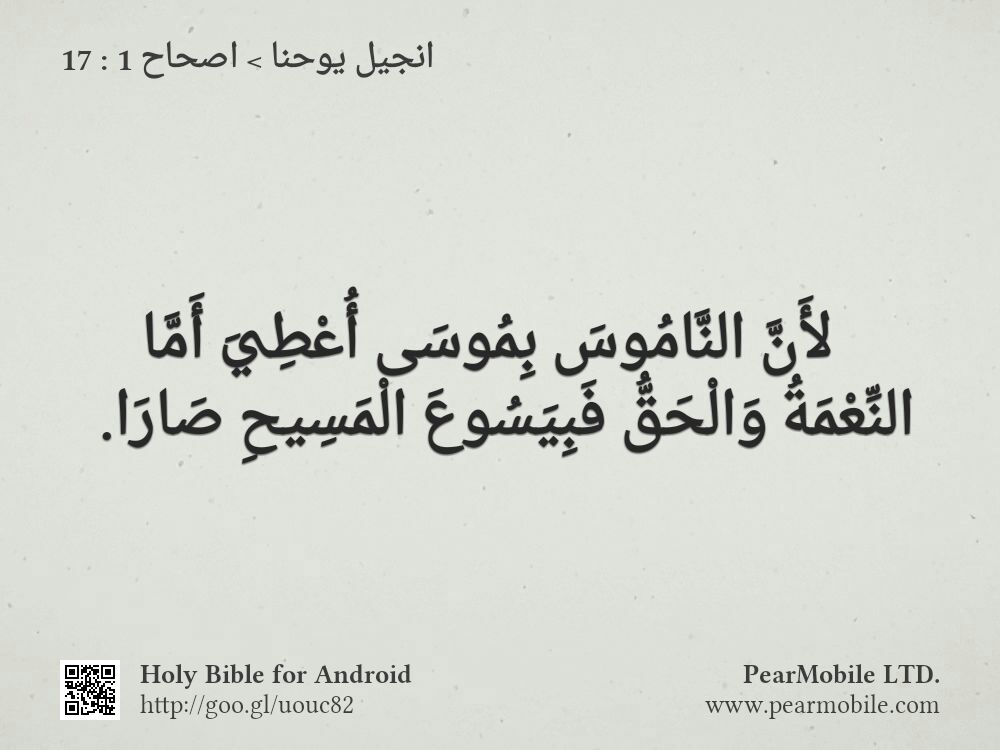 انجيل يوحنا > اصحاح 1 : 17
لأَنَّ النَّامُوسَ بِمُوسَى أُعْطِيَ أَمَّا
النِّعْمَةُ وَالْحَقُّ فَبِيَسُوعَ الْمَسِيحِ صَارَا.
Holy Bible for Android
http://goo.gl/uouc82
PearMobile LTD.
www.pearmobile.com